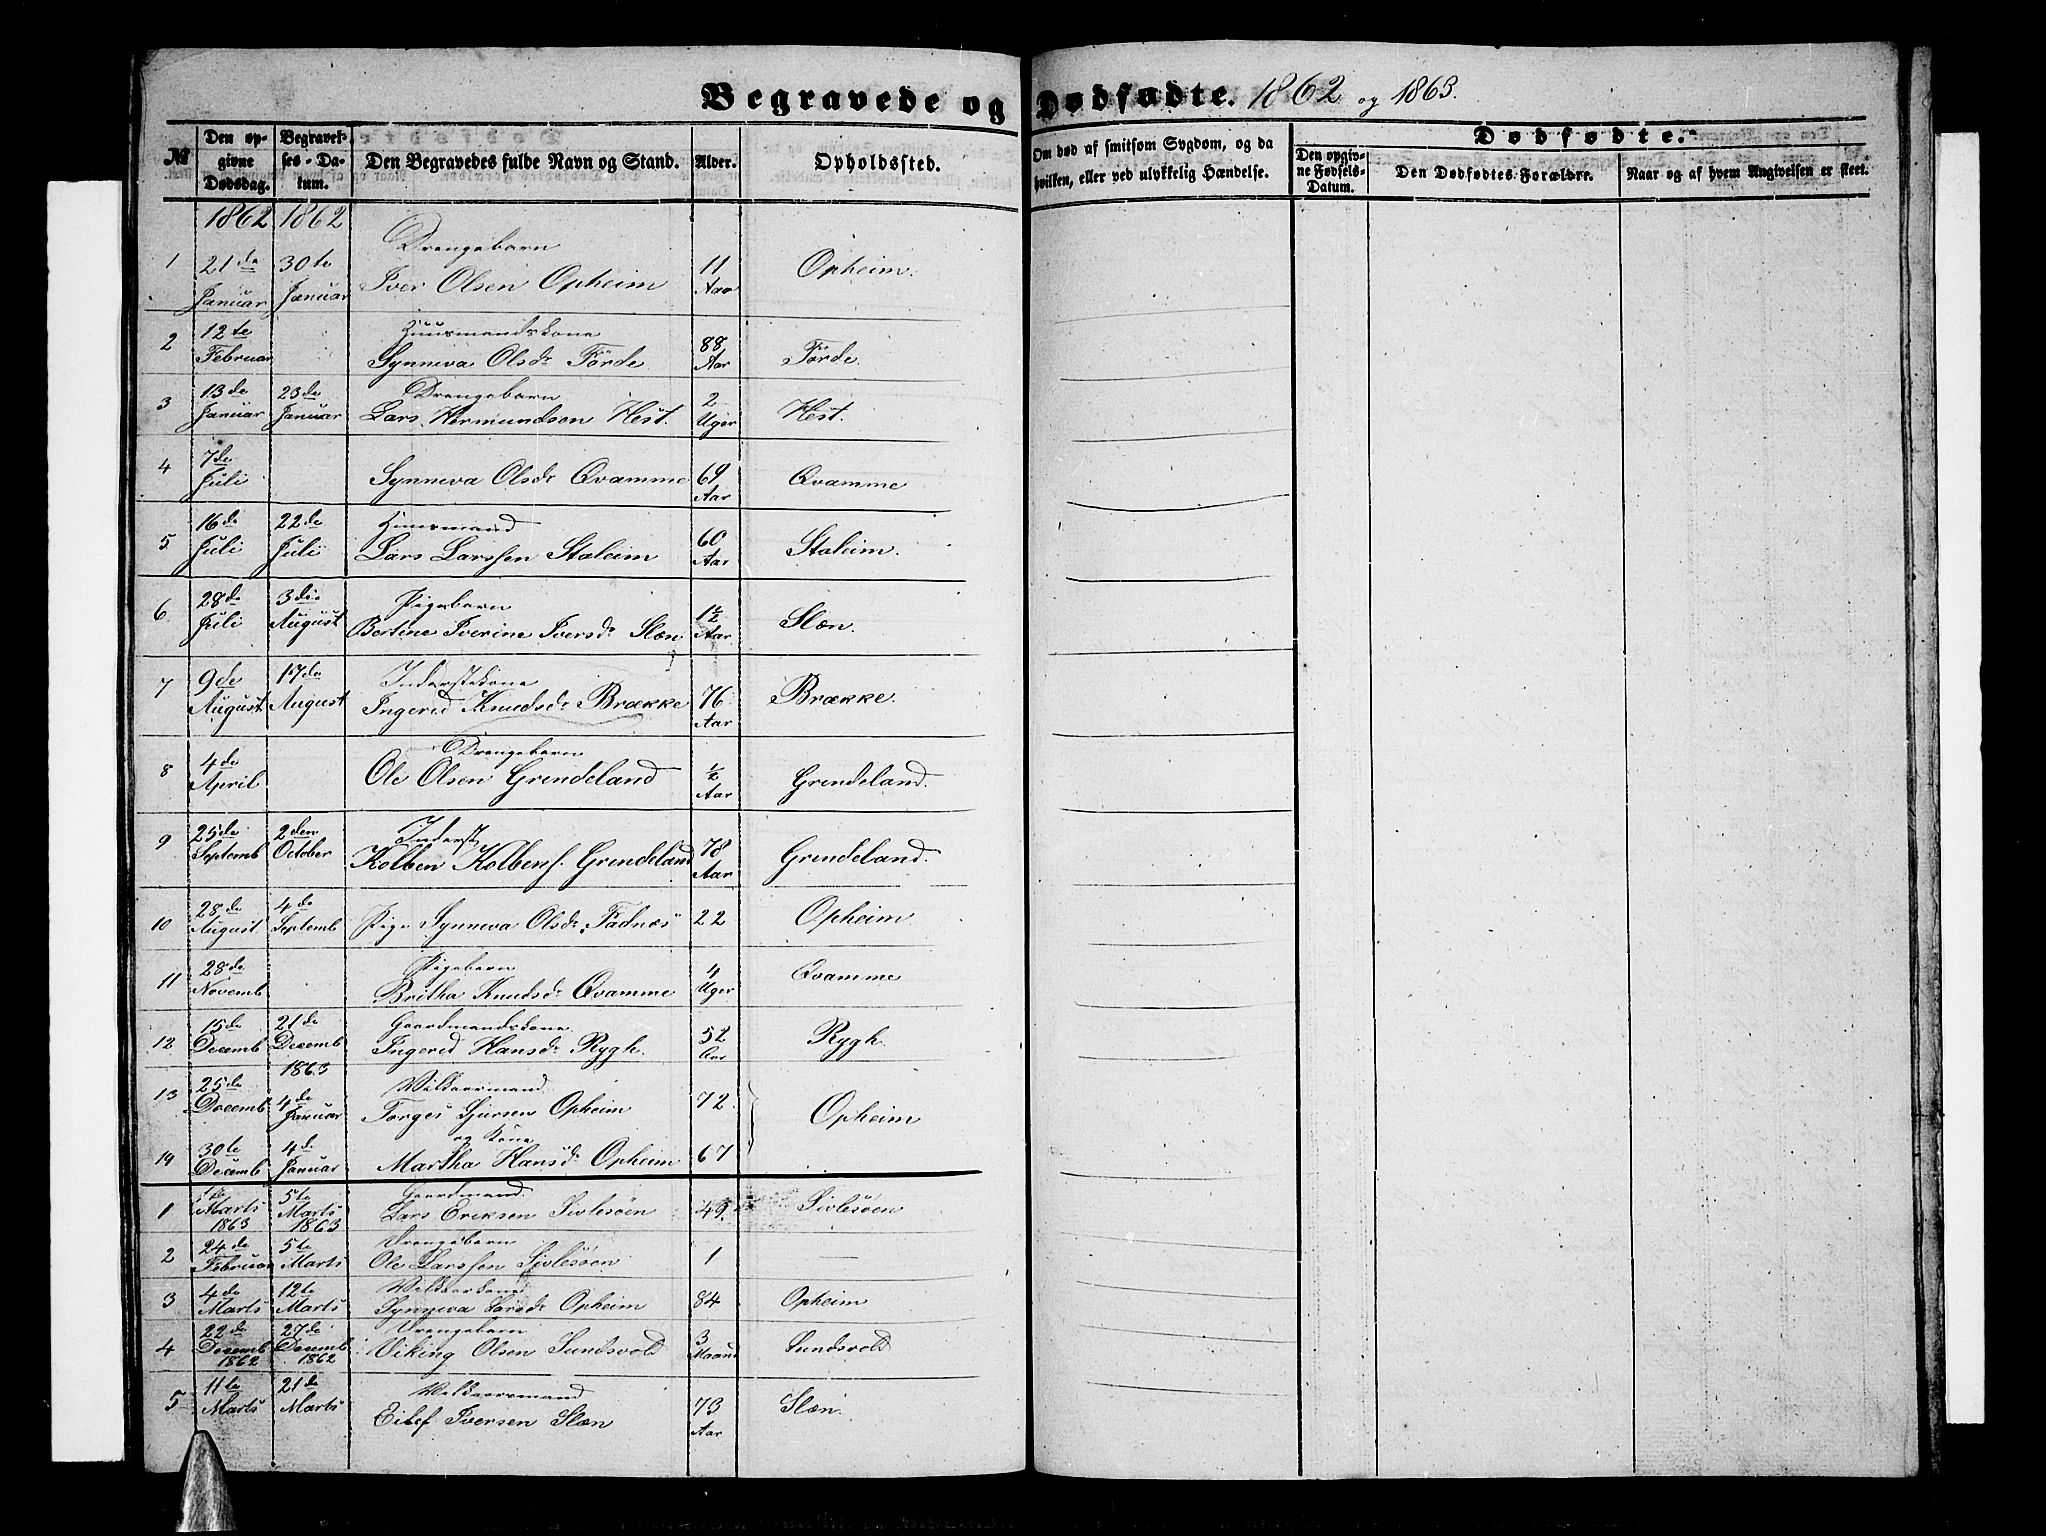 Begravede og Dødfødte. 1862 og 1863.
№ Den opgivne Dødsdag. Begravelses-Datum. Den Begravedes fulde Navn og Stand. Alder. Opholdssted. Om død af smitsom Sygdom, og da hvilken, eller ved ulykkelig Hændelse. Dødfødte. Den opgivne Fødsels-Datum. Den Dødfødtes Forældre. Naar og af hvem Angivelsen er skeet.
1862 1862
Drengebarn
1 21de Januar 30te Januar Iver Olsen Opheim 11 Aar Opheim.
Huusmandskone
2 12te Februar Synneva Olsdr Förde 88 Aar Förde.
Drengebarn
3 13de Januar 23de Januar Lars Hermundsen Hest. 2 Uger Hest.
4 7de Juli Synneva Olsdr Qvamme 69 Aar Qvamme
Huusmand
5. 16de Juli 22de Juli Lars Larssen Staleim 60 Aar Staleim.
Pigebarn
6. 28de Juli 3die August Bertine Iverine Iversdr Slæn 1½ Aar Slæn.
Inderstekone
7 9de August 17de August Ingerid Knudsdr Brække 76 Aar Brække.
Drengebarn
8 4de April Ole Olsen Grendeland ½ Aar Grendeland.
Inderst
9 25de Septemb 2den October Kolben Kolbens. Grendeland 78 Aar Grendeland.
10 28de August. 4de Septemb Pige Synneva Olsdr Fadnæs 22 Opheim
Pigebarn
11 28de Novemb Britha Knudsdr Qvamme 4 Uger Qvamme
Gaardmandskone
12 15de Decemb 21de Decemb Ingerid Hansdr Rygh. 52 Aar Rygh.
1863
Vilkaarmand
13 25de Decemb 4de Januar Torges Gjursen Opheim 72. Opheim
og Kone
14 30te Decemb 4de Januar Martha Hansdr Opheim 67
Gaardmand
1 1te Marts 1863 5te Marts 1863 Lars Eriksen Sivlesöen 49. Sivlesöen
Drengebarn
2 24de Februar 5te Marts Ole Larssen Sivlesöen 1 —
Vilkaarkone
3 4de Marts 12te Marts Synneva Larsdr Opheim 84 Opheim
Drengebarn
4 22de Decemb 1862 27de Decemb 1862 Viking Olsen Sundsvold 3 Maaned Sundsvold
Vilkaarsmand
5 11te Marts 21de Marts Eilef Iversen Slæn 73 Aar Slæn.